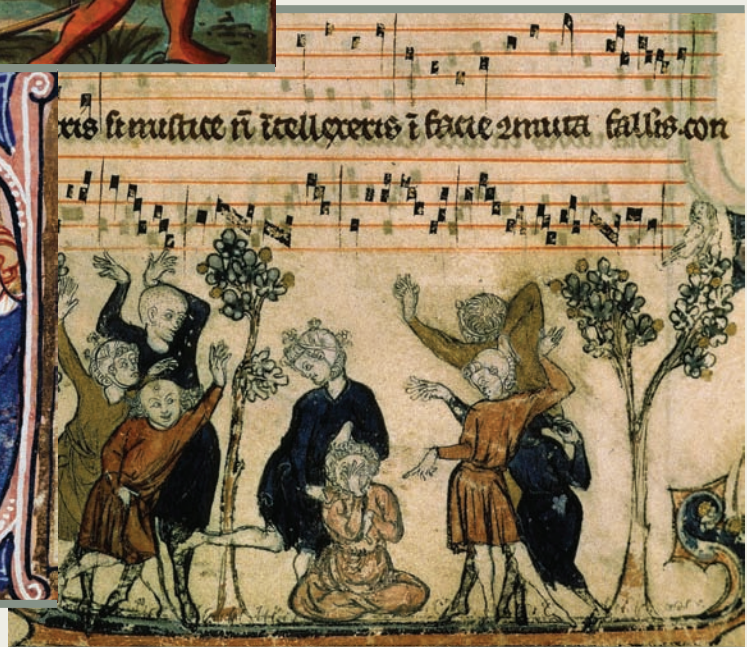 eris si rustice ñ ĩtellexeris ĩ facie ꝯmuta fallis con